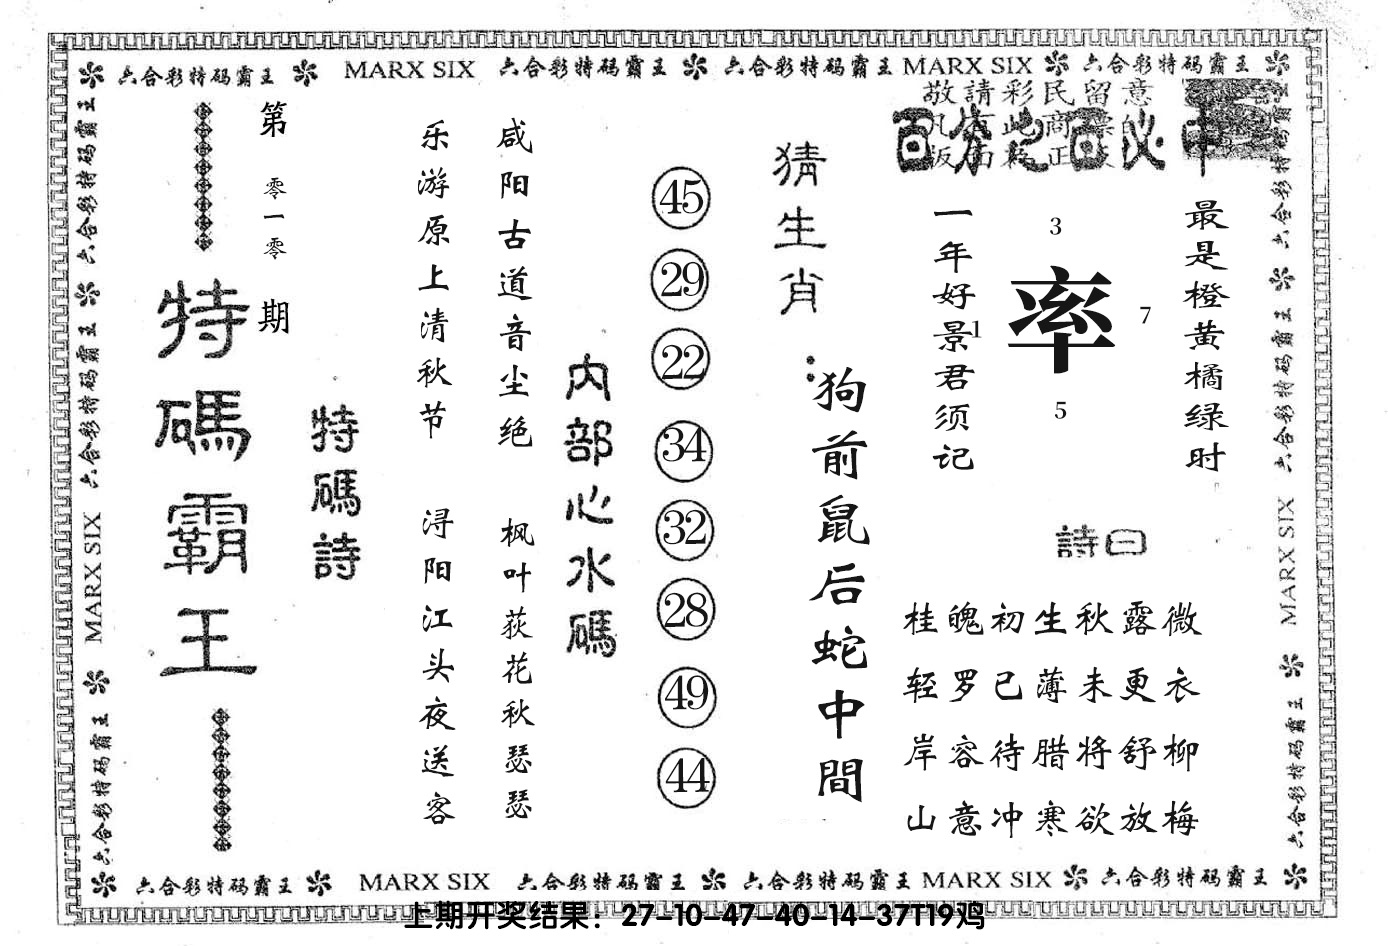 六合彩特码霸王 MARX SIX 六合彩特码霸王 六合彩特码霸王 MARX SIX 六合彩特码霸王
敬請彩民留意
百分之百必中
最是橙黄橘绿时
3
率
1
7
5
一年好景君须记
詩曰
桂魄初生秋露微
轻罗已薄未更衣
岸容待腊将舒柳
山意冲寒欲放梅
猜生肖：
狗前鼠后蛇中間
45
29
22
34
32
28
49
44
内部心水碼
咸阳古道音尘绝 枫叶荻花秋瑟瑟
乐游原上清秋节 浔阳江头夜送客
特碼詩
第零一零期
特碼霸王
六合彩特码霸王 六合彩特码霸王 MARX SIX 六合彩特码霸王
六合彩特码霸王 六合彩特码霸王 MARX SIX 六合彩特码霸王
六合彩特码霸王 MARX SIX 六合彩特码霸王 六合彩特码霸王 MARX SIX 六合彩特码霸王
上期开奖结果：27-10-47-40-14-37T19鸡